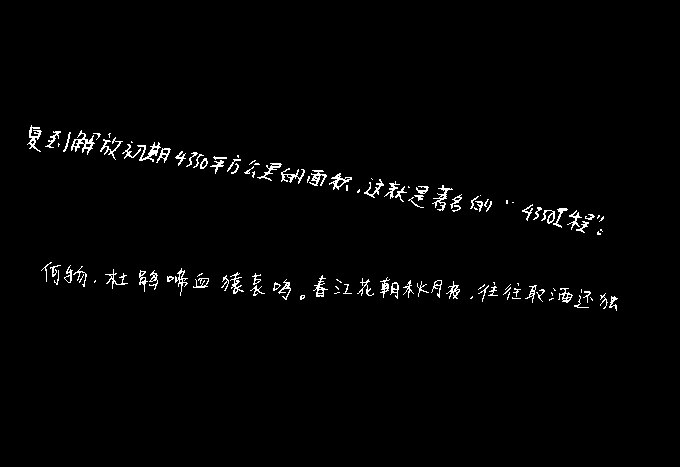 复到解放初期4350平方公里的面积，这就是著名的“4350工程”。
何物，杜鹃啼血猿哀鸣。春江花朝秋月夜，往往取酒还独